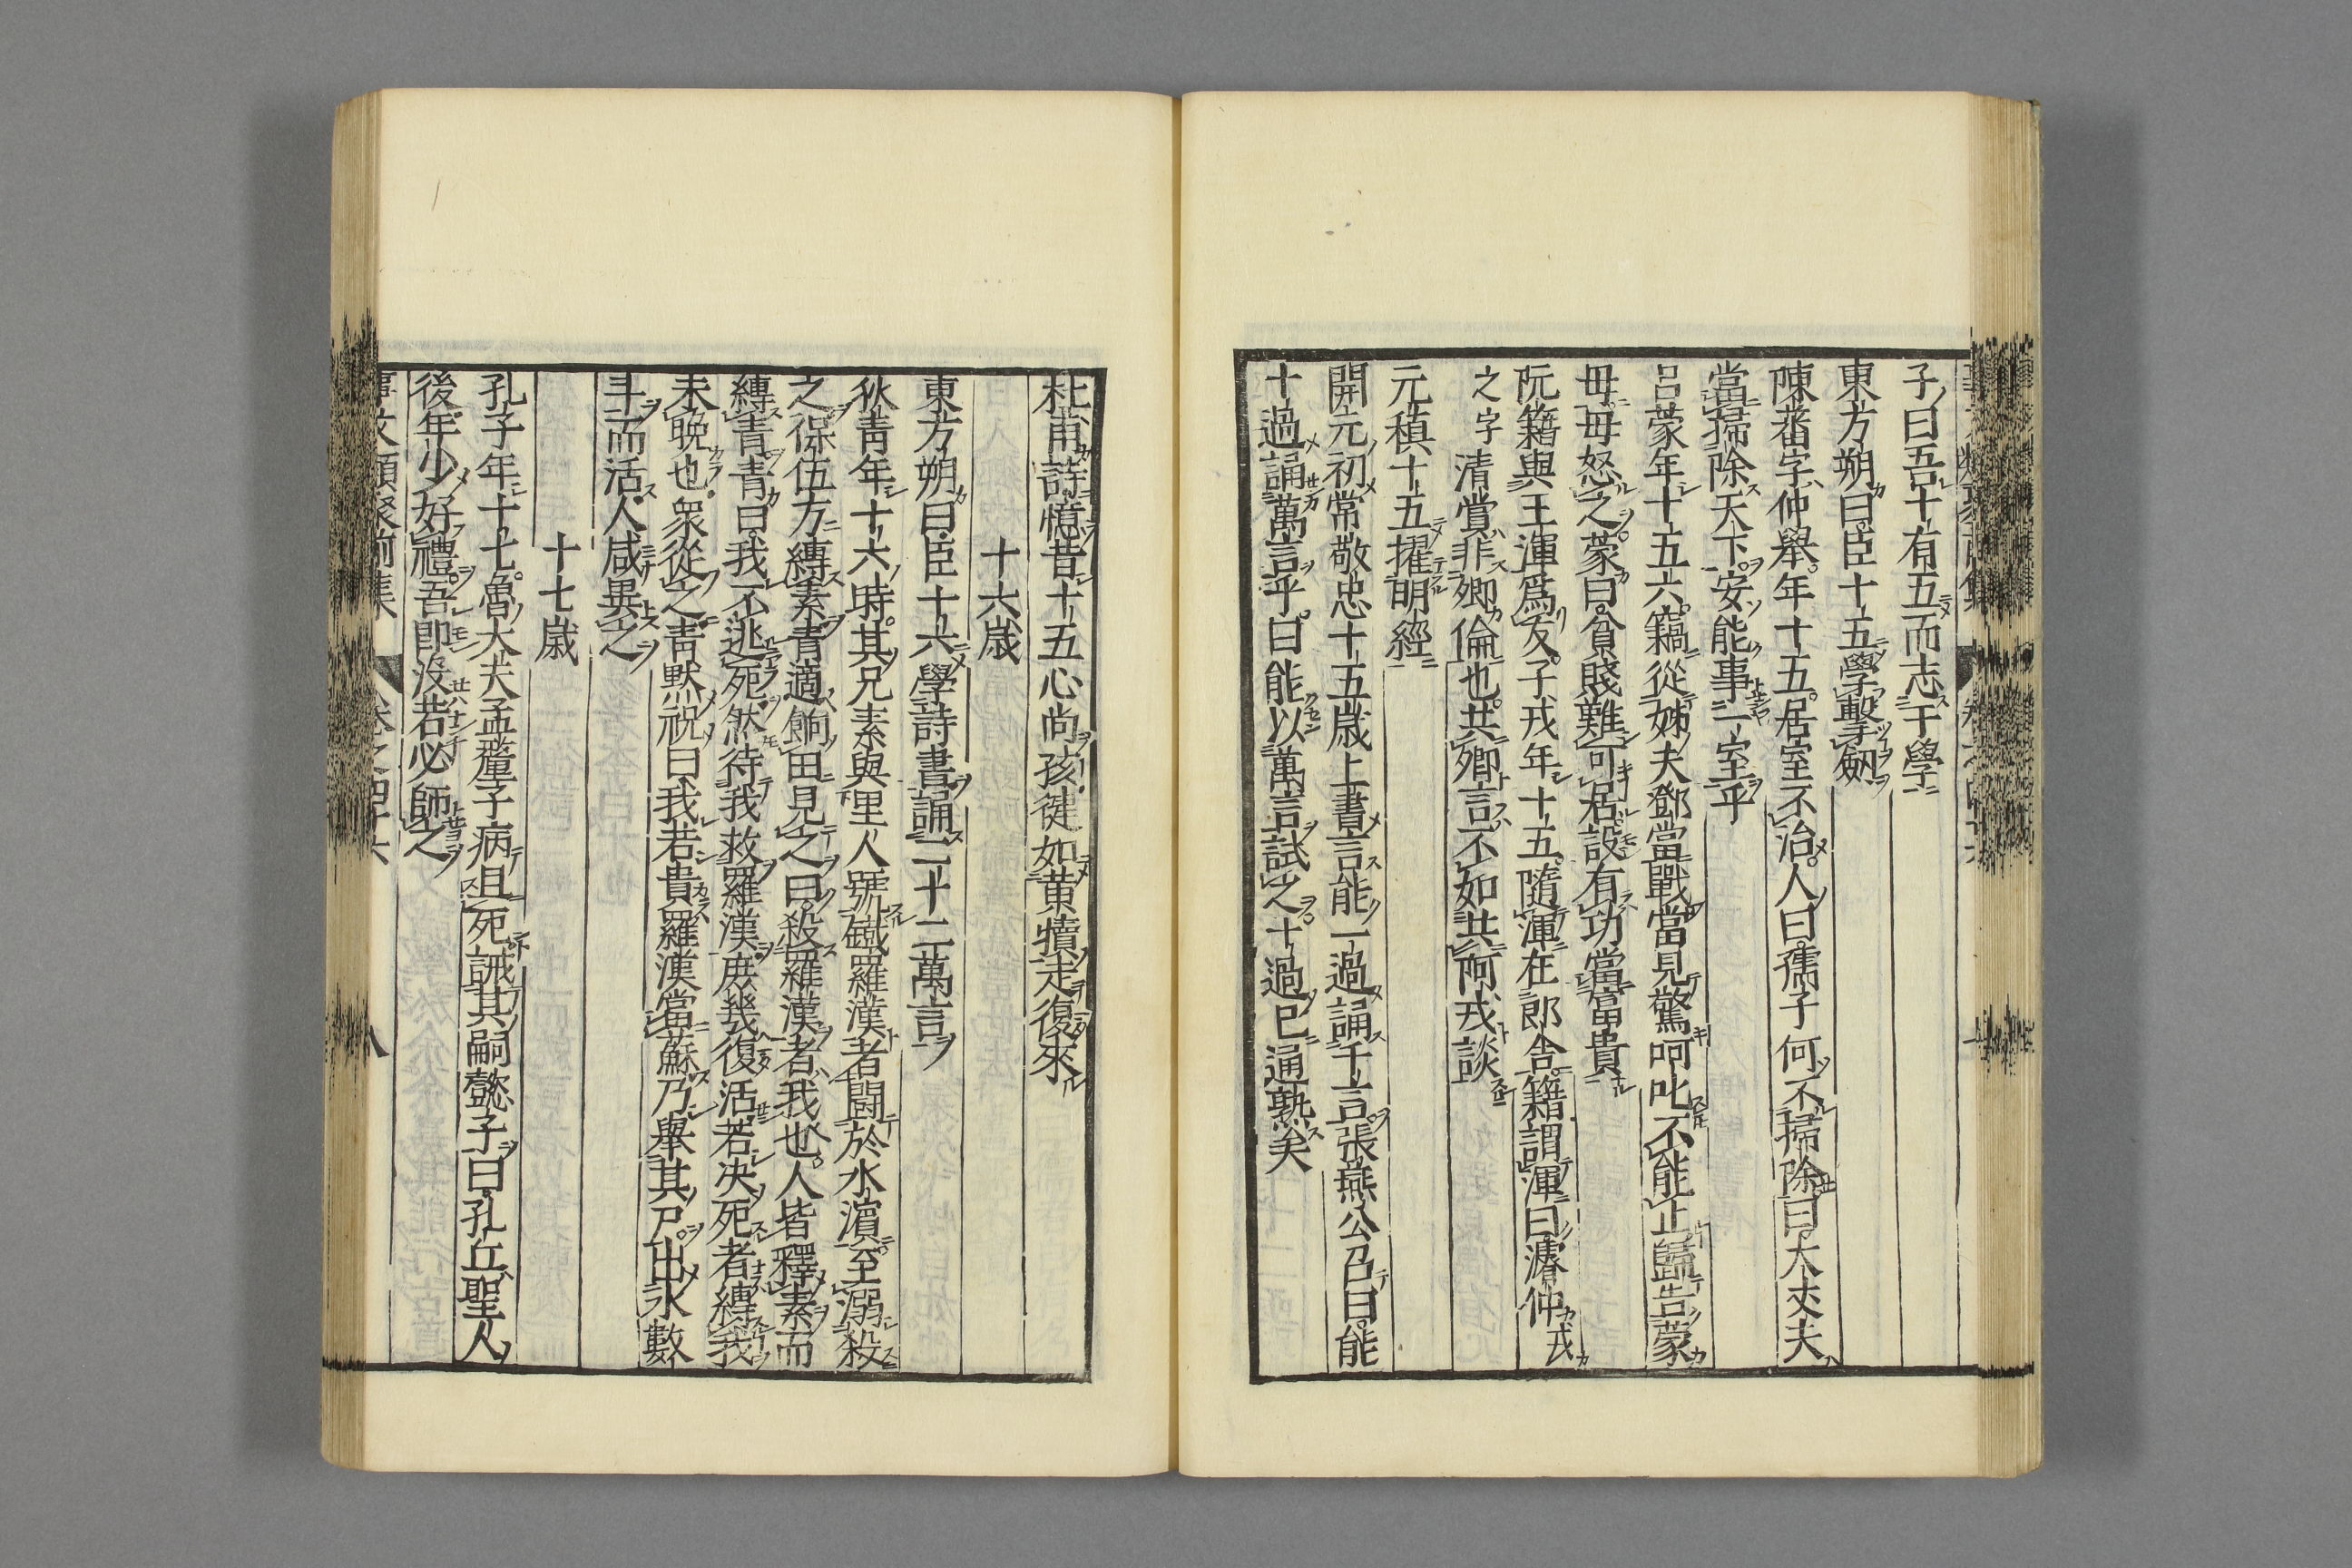 子曰吾十有五而志于學
東方朔曰臣十五學擊劔
陳蕃字仲舉年十五居室不治人曰孺子何不掃除曰大丈夫
當掃除天下安能事一室乎
呂蒙年十五六竊從姊夫鄧當戰當見驚呵叱不能止歸告蒙
母母怒之蒙曰貧賤難可居設有功當富貴
阮籍與王渾爲友子戎年十五隨渾在郎舍籍謂渾曰濬仲戎
之字清賞非卿倫也共卿言不如共阿戎談
元稹十五擢明經
開元初常敬忠十五歳上書言能一過誦千言張燕公召曰能
十過誦萬言乎曰能以萬言試之十過已通熟矣
杜甫詩憶昔十五心尚孩健如黄犢走復來
十六歳
東方朔曰臣十六學詩書誦二十二萬言
狄青年十六時其兄素與里人號鐵羅漢者鬪於水濵至溺殺
之保伍方縛素青適餉田見之曰殺羅漢者我也人皆釋素而
縛青青曰我不逃死然待我救羅漢庶幾復活若决死者縛我
未晩也衆從之青黙祝曰我若貴羅漢當蘇乃舉其尸出水數
斗而活人咸異之
十七歳
孔子年十七魯大夫孟釐子病且死誡其嗣懿子曰孔丘聖人
後年少好禮吾即沒若必師之
事文類聚前集 卷之四十六 八